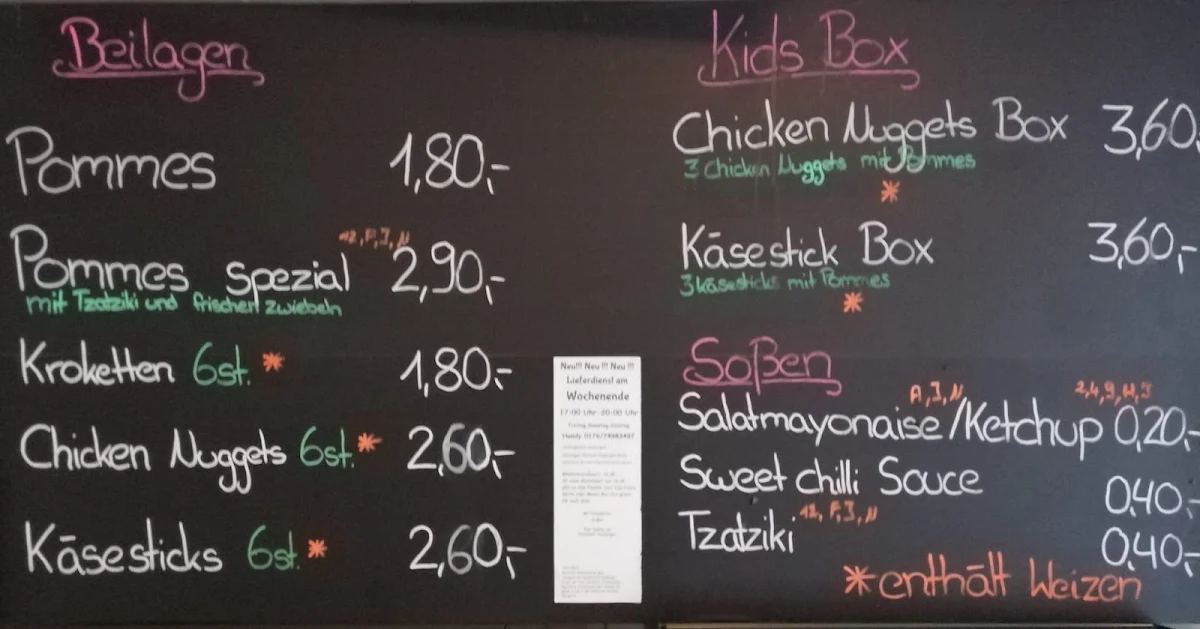 Beilagen
Pommes 1,80,-
Pommes Spezial 2,90,-
mit Tzatziki und frischen Zwiebeln
Kroketten 6st. * 1,80,-
Chicken Nuggets 6st. * 2,60,-
Käsesticks 6st. * 2,60,-
Neu!!! Neu !!! Neu !!!
Lieferdienst am
Wochenende
17:00 Uhr-20:00 Uhr
Kids Box
Chicken Nuggets Box 3,60,
3 Chicken Nuggets mit Pommes
*
Käsestick Box 3,60,-
3 Käsesticks mit Pommes
*
Soßen
A,J,N
Salatmayonaise/Ketchup 0,20,-
Sweet chilli Souce 0,40-
Tzatziki 0,40-
*enthält Weizen